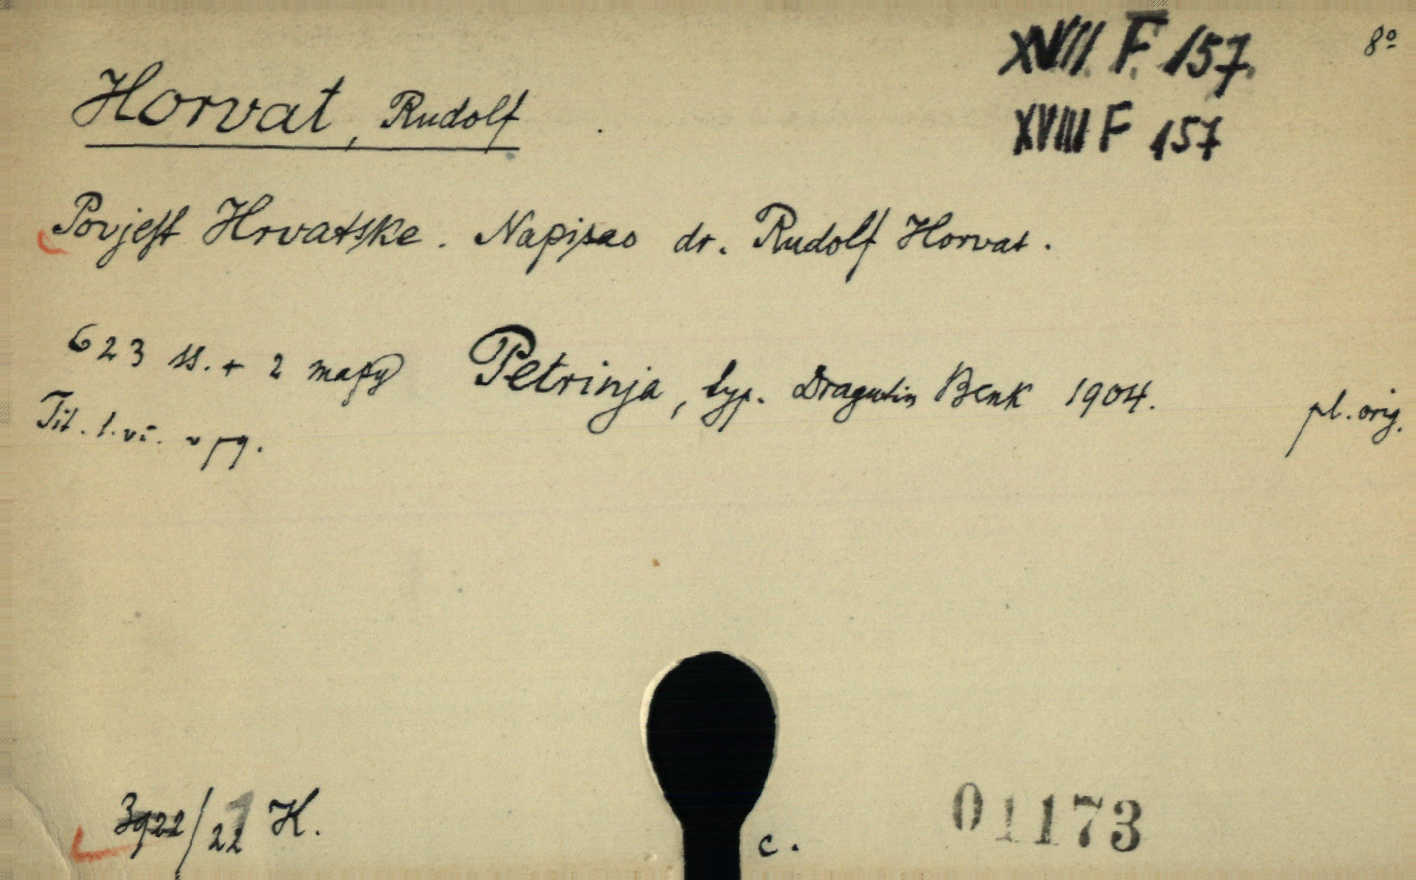 XVIII F 157. 8º
XVIII F 157
Horvat, Rudolf
Povjest Hrvatske. Napisao dr. Rudolf Horvat.
623 ss. + 2 mapy Petrinja, typ. Dragutin Benk 1904.
pl. orig.
Tit.
3922/22 K.
c.
01173